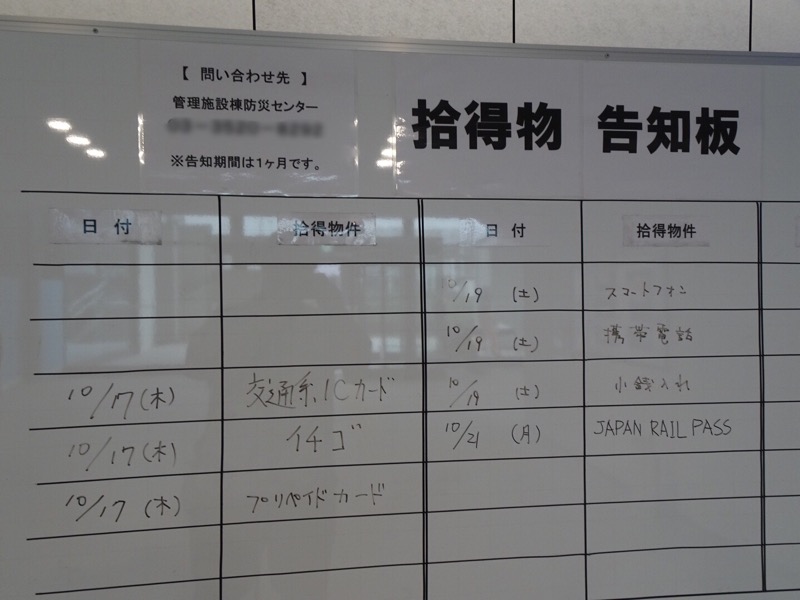 【 問い合わせ先 】
管理施設棟防災センター
※告知期間は1ヶ月です。
拾得物 告知板
日 付 拾得物件 日 付 拾得物件
10/19 (土) スマートフォン
10/19 (土) 携帯電話
10/17(木) 交通系ICカード 10/19 (土) 小銭入れ
10/17(木) イチゴ 10/21 (月) JAPAN RAIL PASS
10/17 (木) プリペイドカード